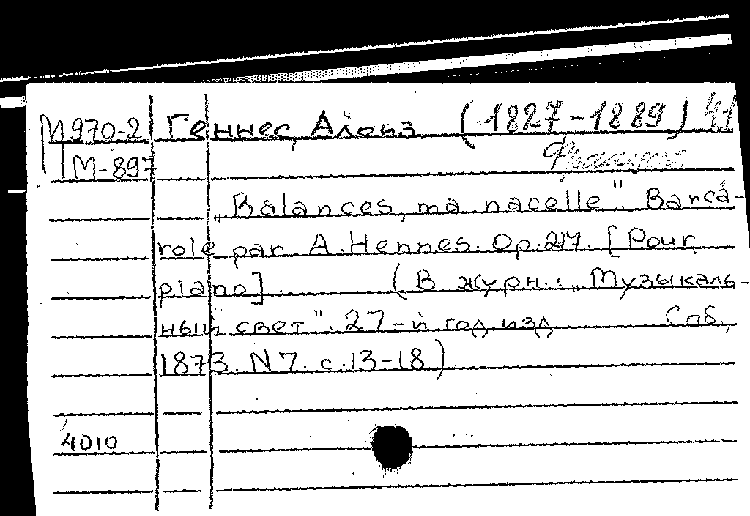 М970-2 Геннес, Алоиз (1827-1889) 41
М-897 Франция
„Balances, ma nacelle". Barca-
role par A. Hennes. Op. 217. [Pour
piano] (В журн.: „Музыкаль-
ный свет". 27-й год изд Спб,
1873. N7. с.13-18)
4010